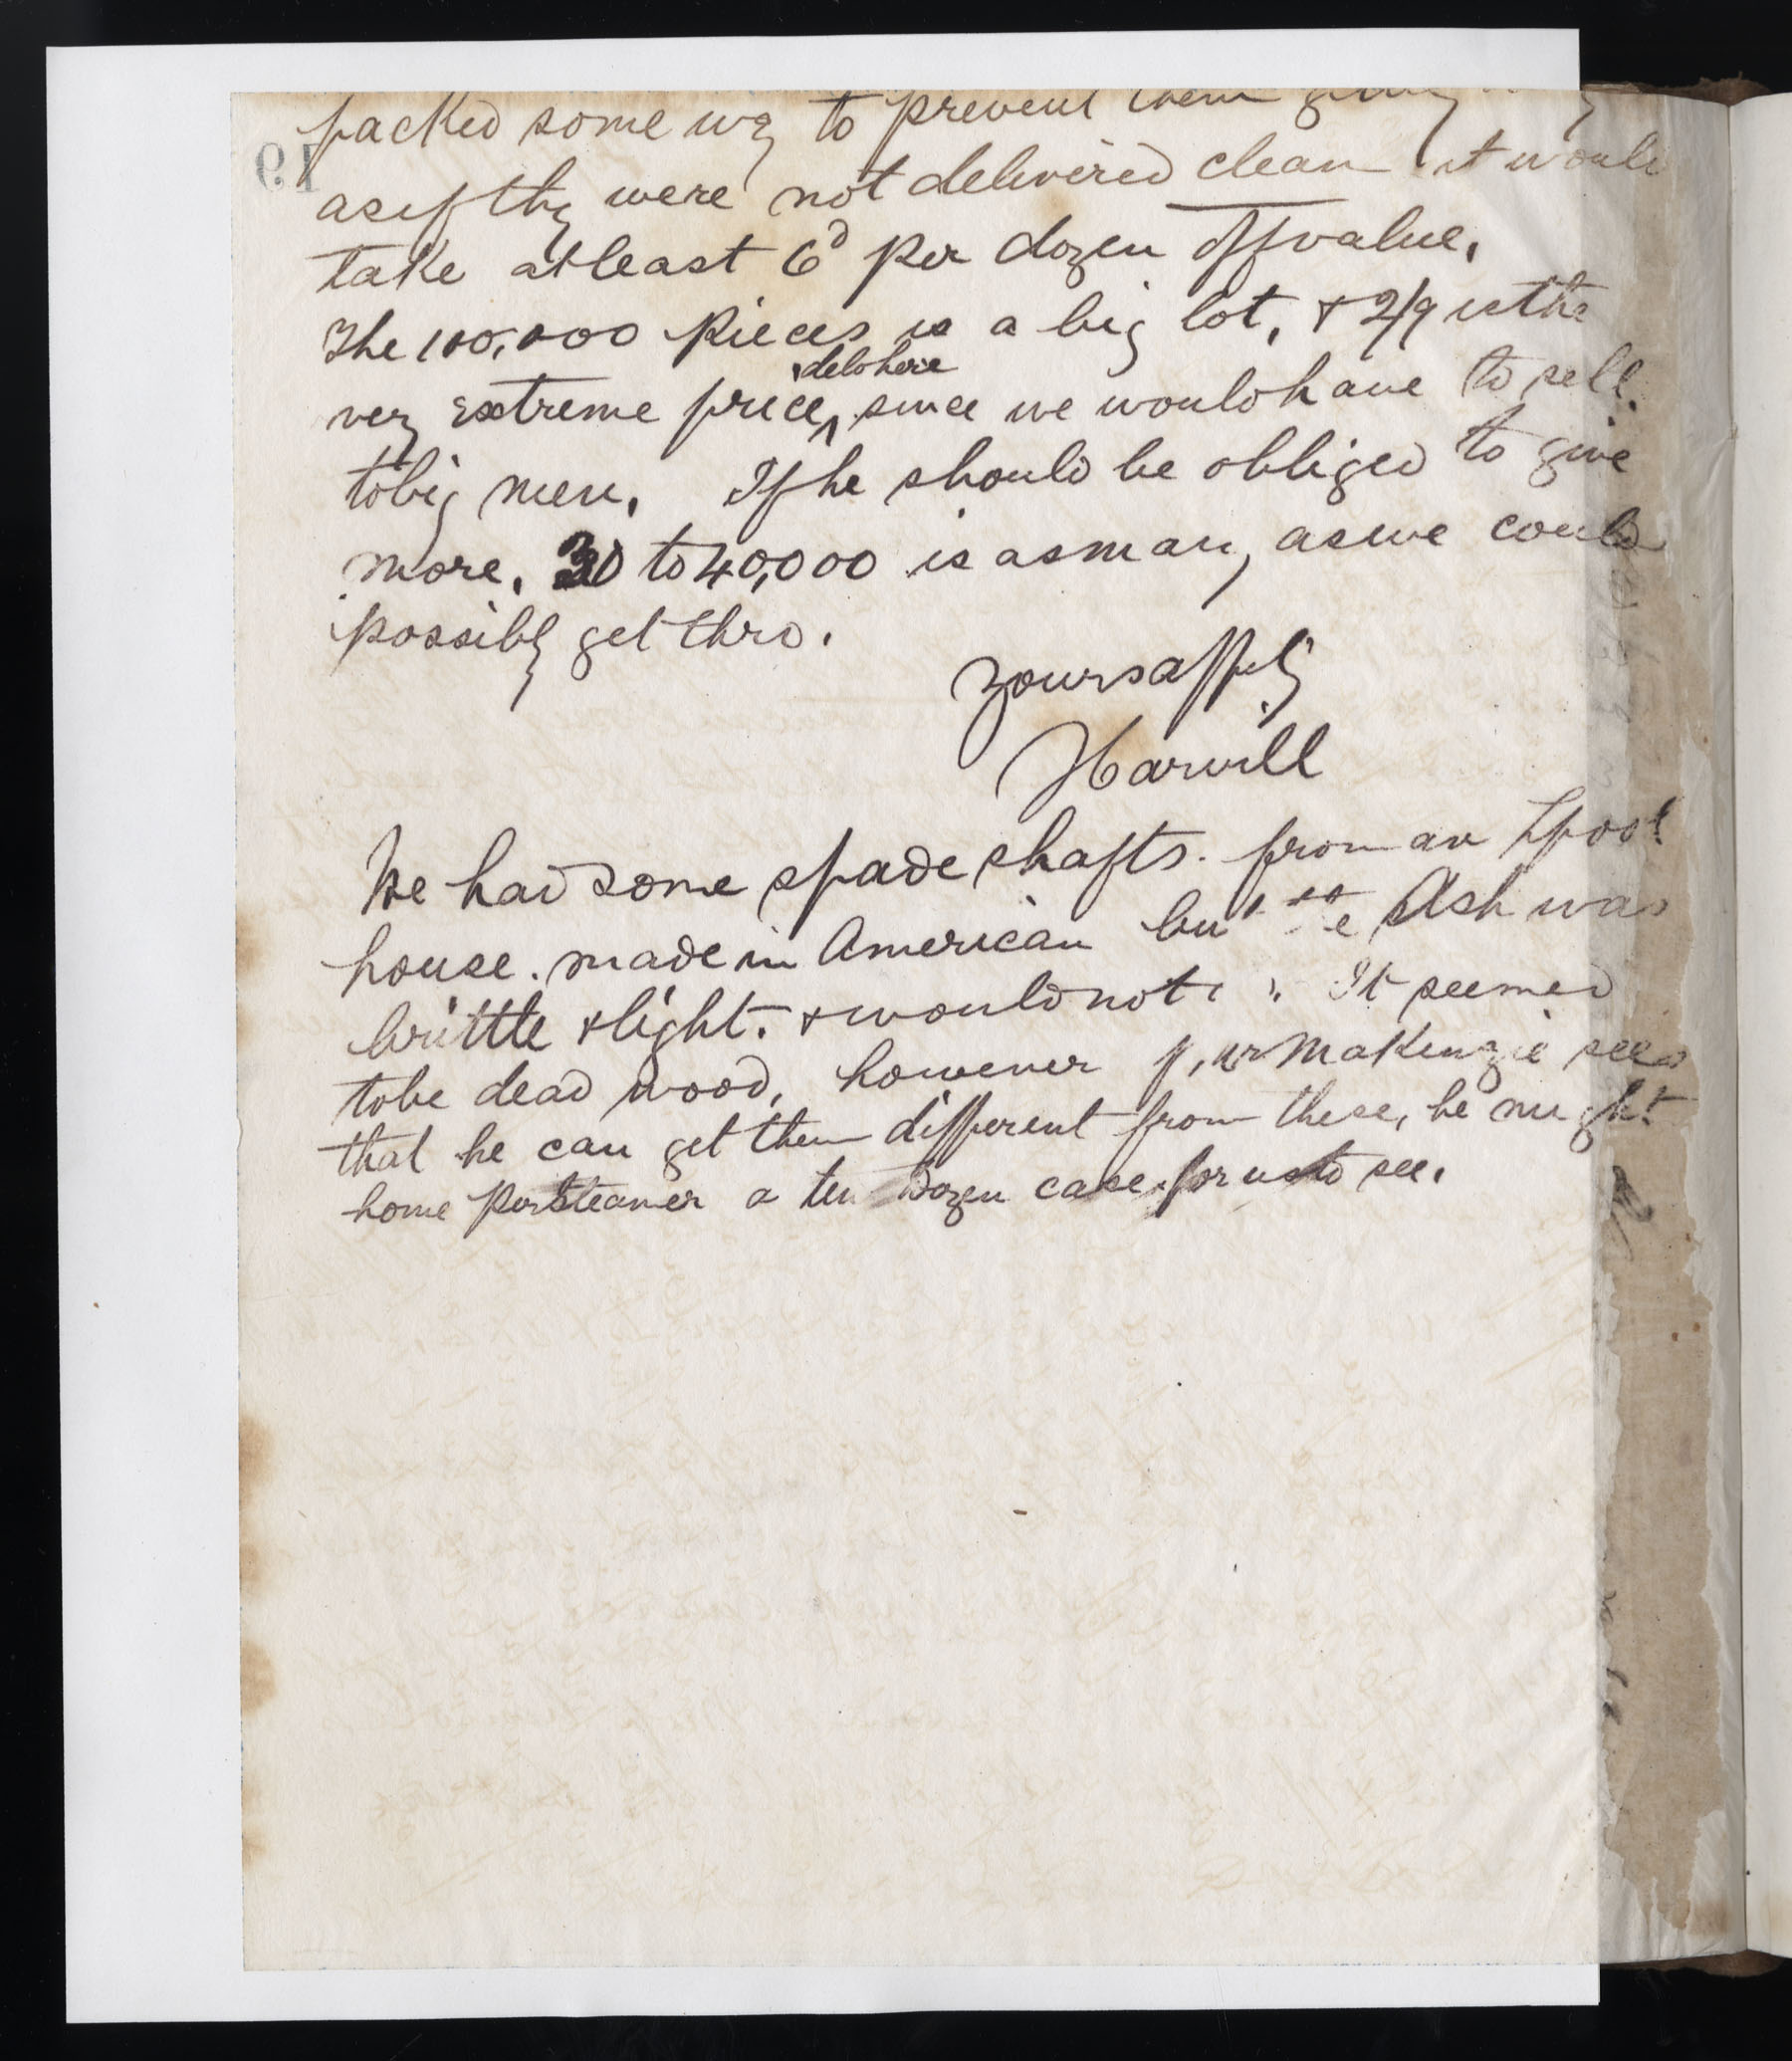 packed some way to prevent them
as if they were not delivered clean it would
take at least 6d per dozen off value.
The 100,000 pieces is a big lot, & 2/9 is the
deld here
very extreme price, since we would have to sell
to big men. If he should be obliged to give
more, 30 to 40,000 is as many as we could
possibly get thro.
yours affely
Harvill
We had some spade shafts. from an Lpool
house. made in American but the Ash was
brittle & light. & would not It seemed
to be dead wood, however if Mr MaKenzie sees
that he can get them different from these, he might
home per steamer a ten dozen case for us to see.